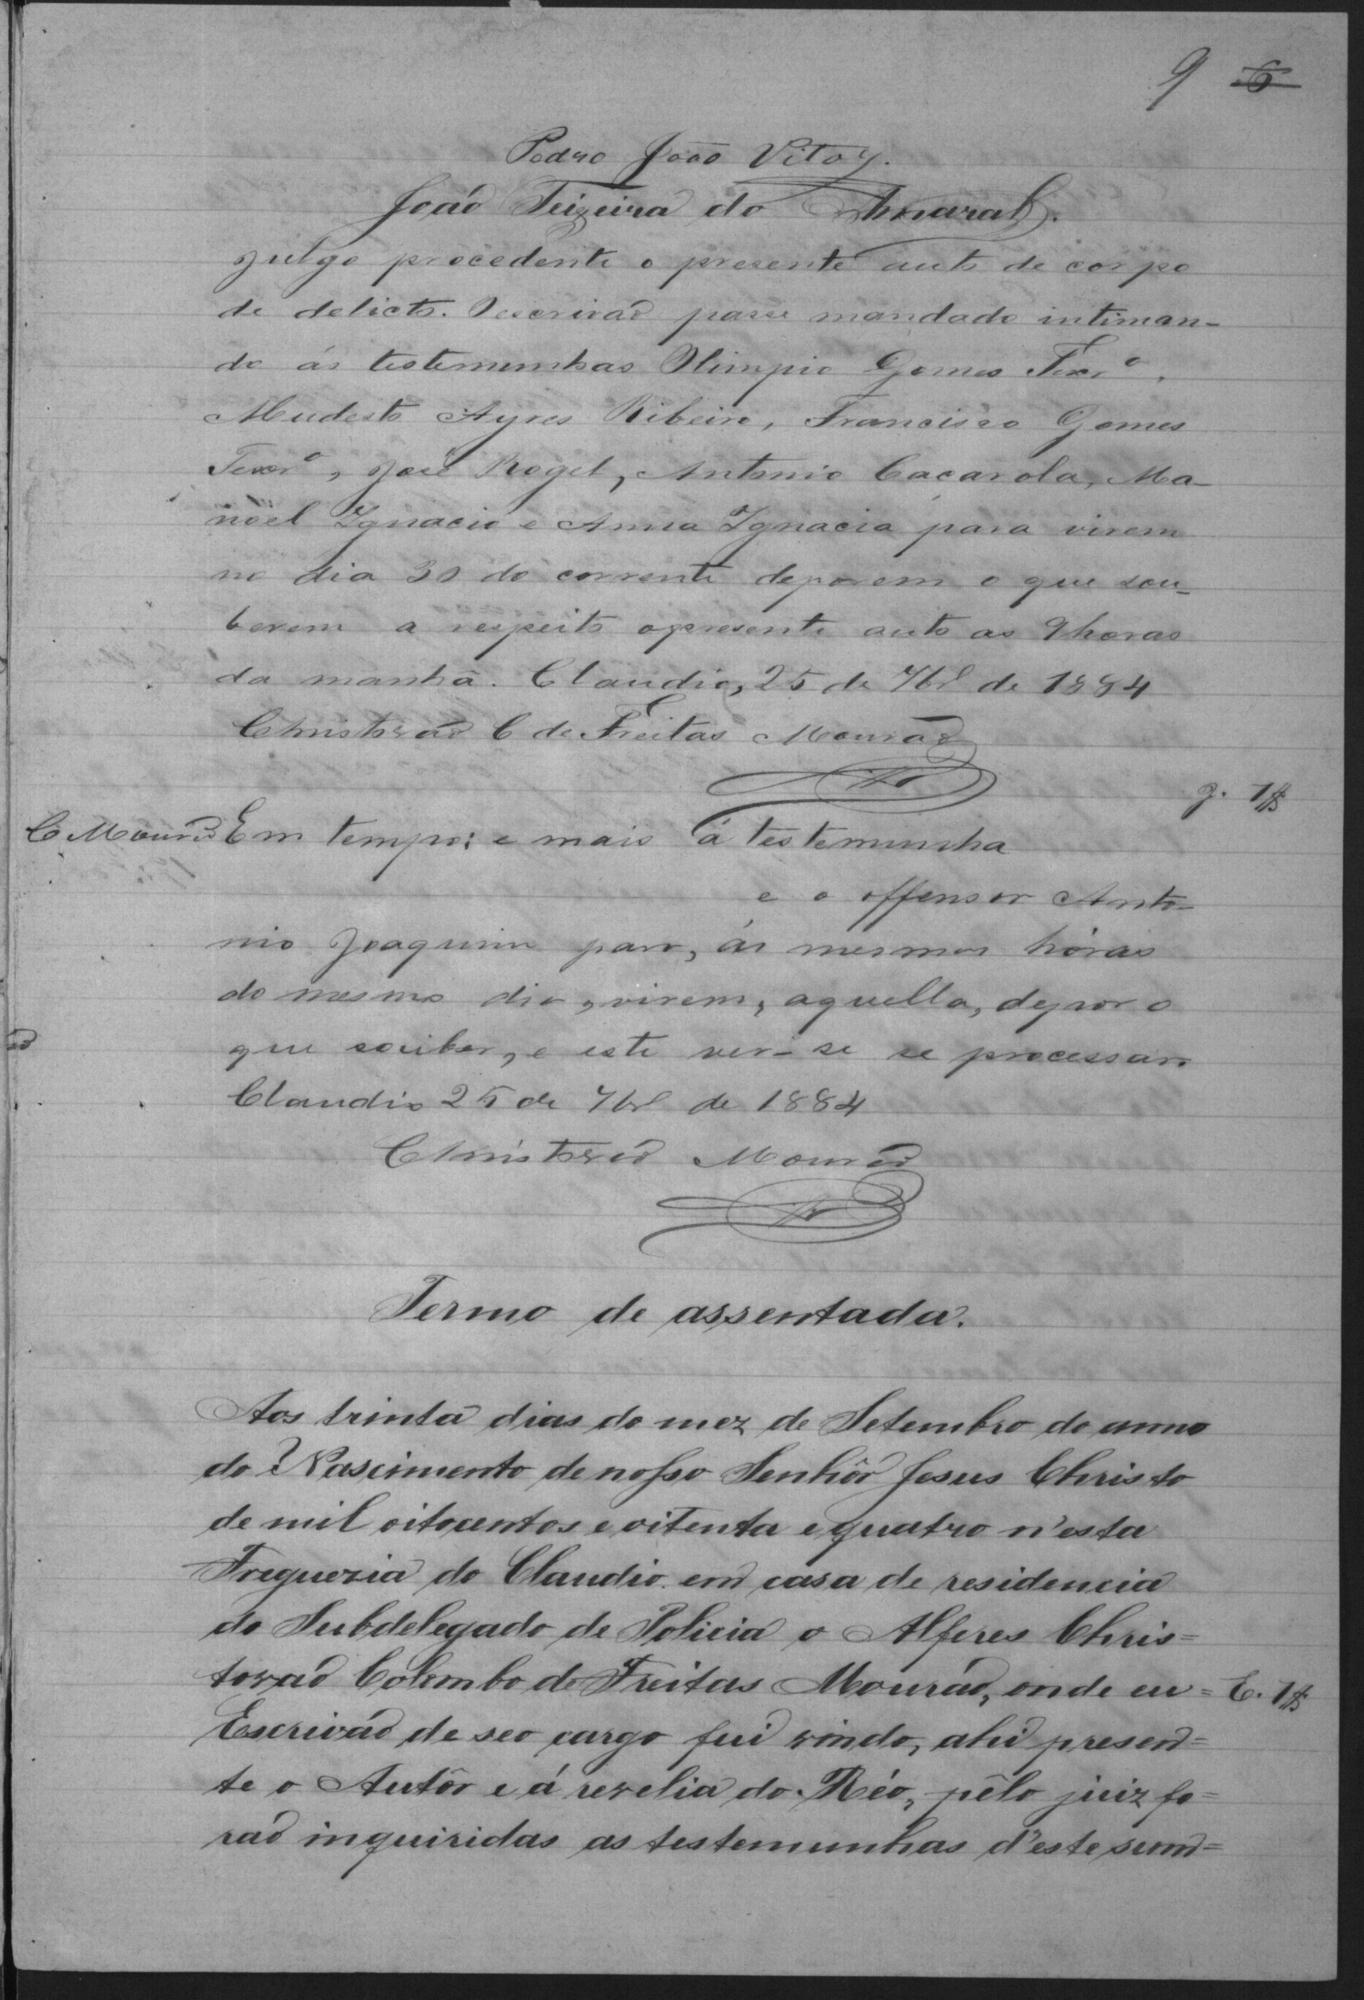 9 6
Pedro João Vitoy.
João Teixeira do Amaral.
Julgo procedente o presente auto de corpo
de delicto. O escrivão passe mandado intiman-
do ás testemunhas Olimpio Gomes Teixrº,
Mudesto Ayres Ribeiro, Francisco Gomes
Teixrº, José Rogel, Antonio Caçarola, Ma-
noel Ignacio e Anna Ignacia para virem
no dia 30 do corrente deporem o que sou-
berem a respeito o presente auto as 9 horas
da manhã. Claudio, 25 de 7br de 1884
Christovão C de Freitas Mourão
J. 1$
C Mourão Em tempo: e mais á testemunha
e o offensor Anto-
nio Joaquim para, ás mesmas hóras
do mesmo dia, virem, aquella, depor o
que souber, e este ver-se se processar.
Claudio 25 de 7br de 1884
Christovão Mourão
Termo de assentada.
Aos trinta dias do mez de Setembro do anno
do Nascimento de nosso Senhôr Jesus Christo
de mil oitocentos e oitenta e quatro n'esta
Freguezia do Claudio em casa de residencia
do Subdelegado de Policia o Alferes Chris=
tovão Colombo de Freitas Mourão, onde eu = E. 1$
Escrivão de seo cargo fui vindo, ahi presen=
te o Autôr e á revelia do Réo, pêlo juiz fo=
rão inquiridas as testemunhas d'este sum=